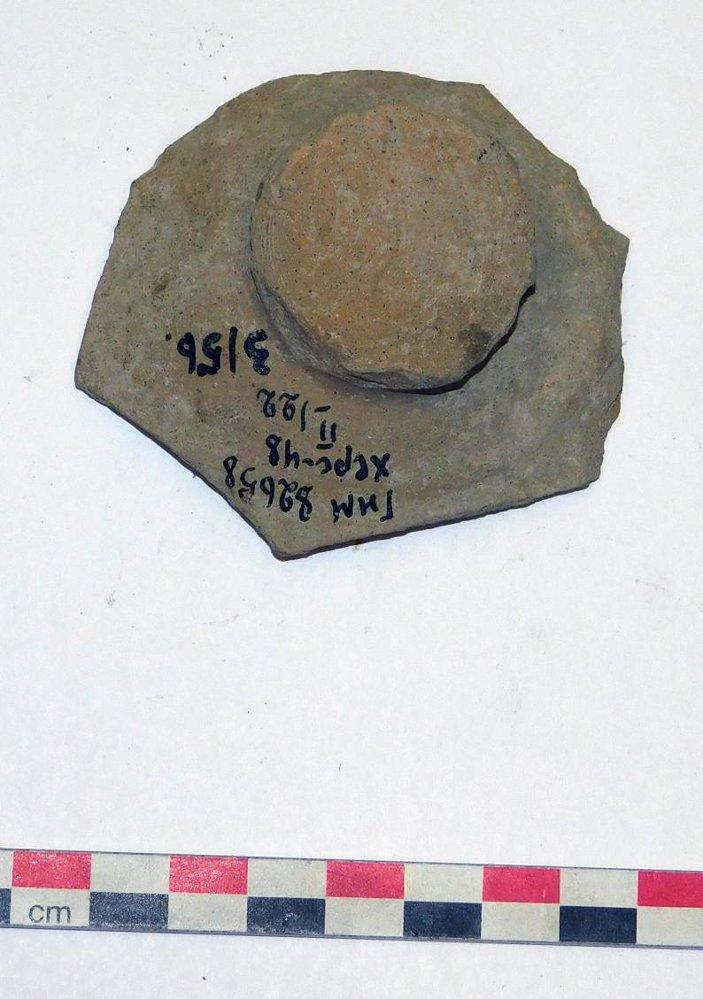 ГИМ 82658
Херс-48
II-/22
3/56.
cm